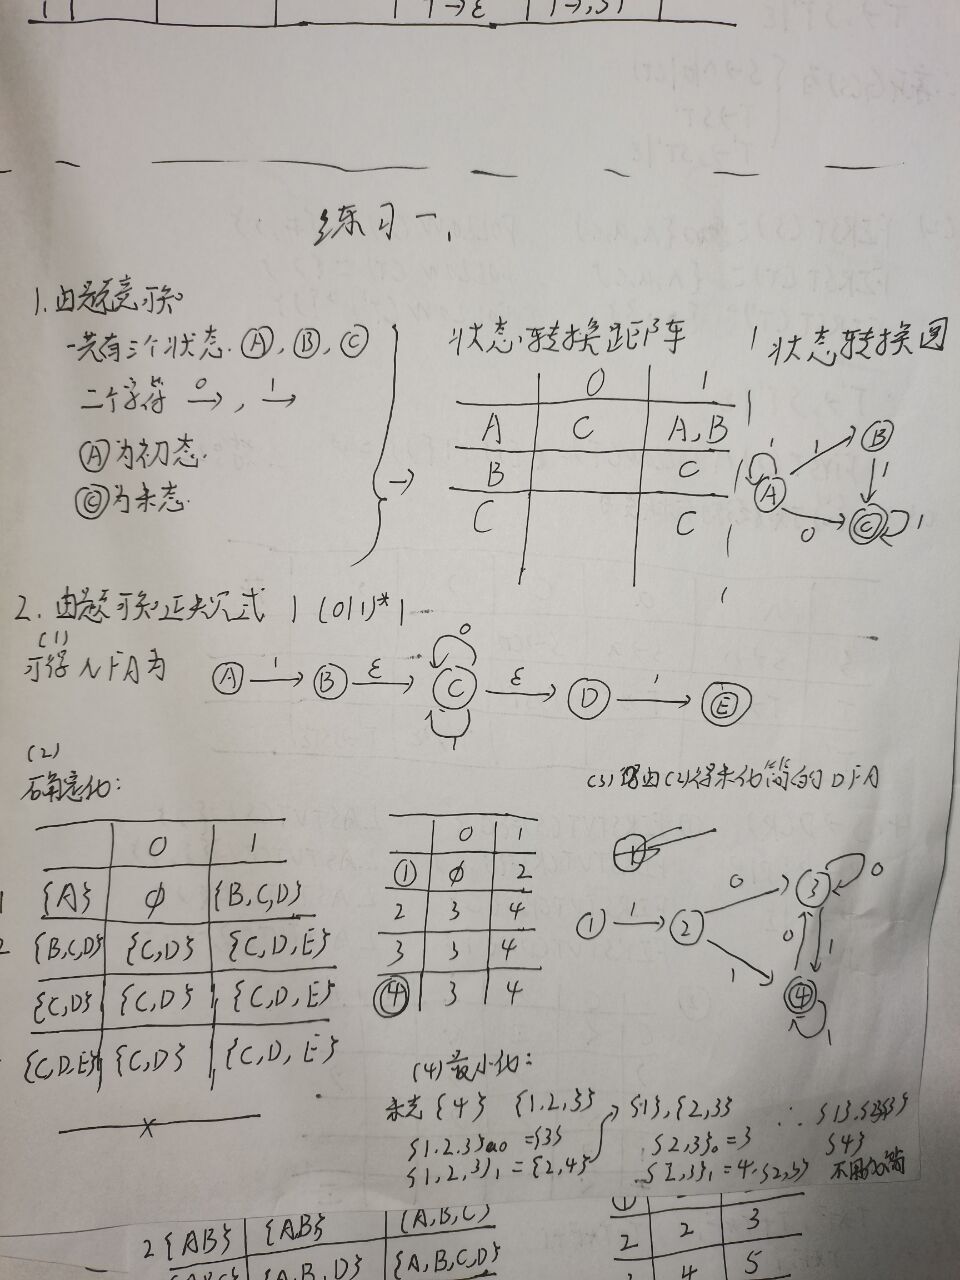 T→ε T→,S T
练习一.
1.由题意可知
一共有三个状态.Ⓐ,Ⓑ,Ⓒ
二个字符 0→, 1→
Ⓐ为初态.
Ⓒ为末态.
状态转换距阵
0 1
A C A,B
B C
C C
状态转换图
1 1 B
A 1
0 C 1
2.由题可知正关次式 1(0|1)*1
(1)
可得NFA为
A 1 B ε C ε D 1 E
0
1
(2)
确定化:
0 1
{A} ∅ {B,C,D}
{B,C,D} {C,D} {C,D,E}
{C,D} {C,D} {C,D,E}
{C,D,E} {C,D} {C,D,E}
0 1
① ∅ 2
2 3 4
3 3 4
④ 3 4
(3)由(2)得未化简的DFA
① 1 ② 0 ③ 0
1 0 1
④ 1
(4)最小化:
末态{4} {1,2,3}
{1,2,3}0={3}
{1,2,3}1={2,4}
{1},{2,3}
{2,3}0=3
{2,3}1=4
∴{1}.{2,3}
{4}
不用化简
2 {AB} {AB} {A,B,C}
{A,B,D} {A,B,C,D}
2 2 3
4 5